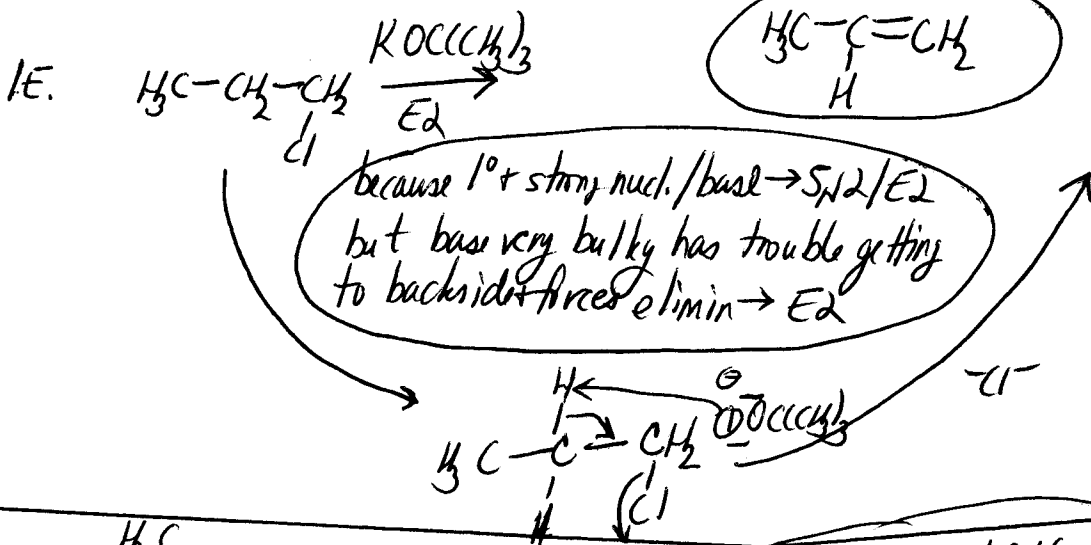 1E. H₃C-CH₂-CH₂
Cl
KOC(CH₃)₃
E2
H₃C-C=CH₂
H
because 1° + strong nucl./base → SN2/E2
but base very bulky has trouble getting
to backside + forces elimin → E2
H
H₃C-C-CH₂ ⊖ OC(CH₃)₃
H Cl
-Cl⁻
H₃C